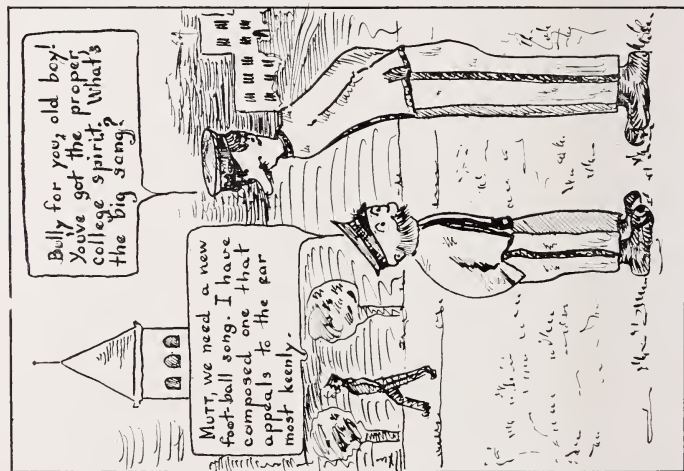 MUTT, we need a new
foot-ball song. I have
composed one that
appeals to the ear
most keenly.
Bully for you, old boy!
You've got the proper,
college spirit. What's
the big song?